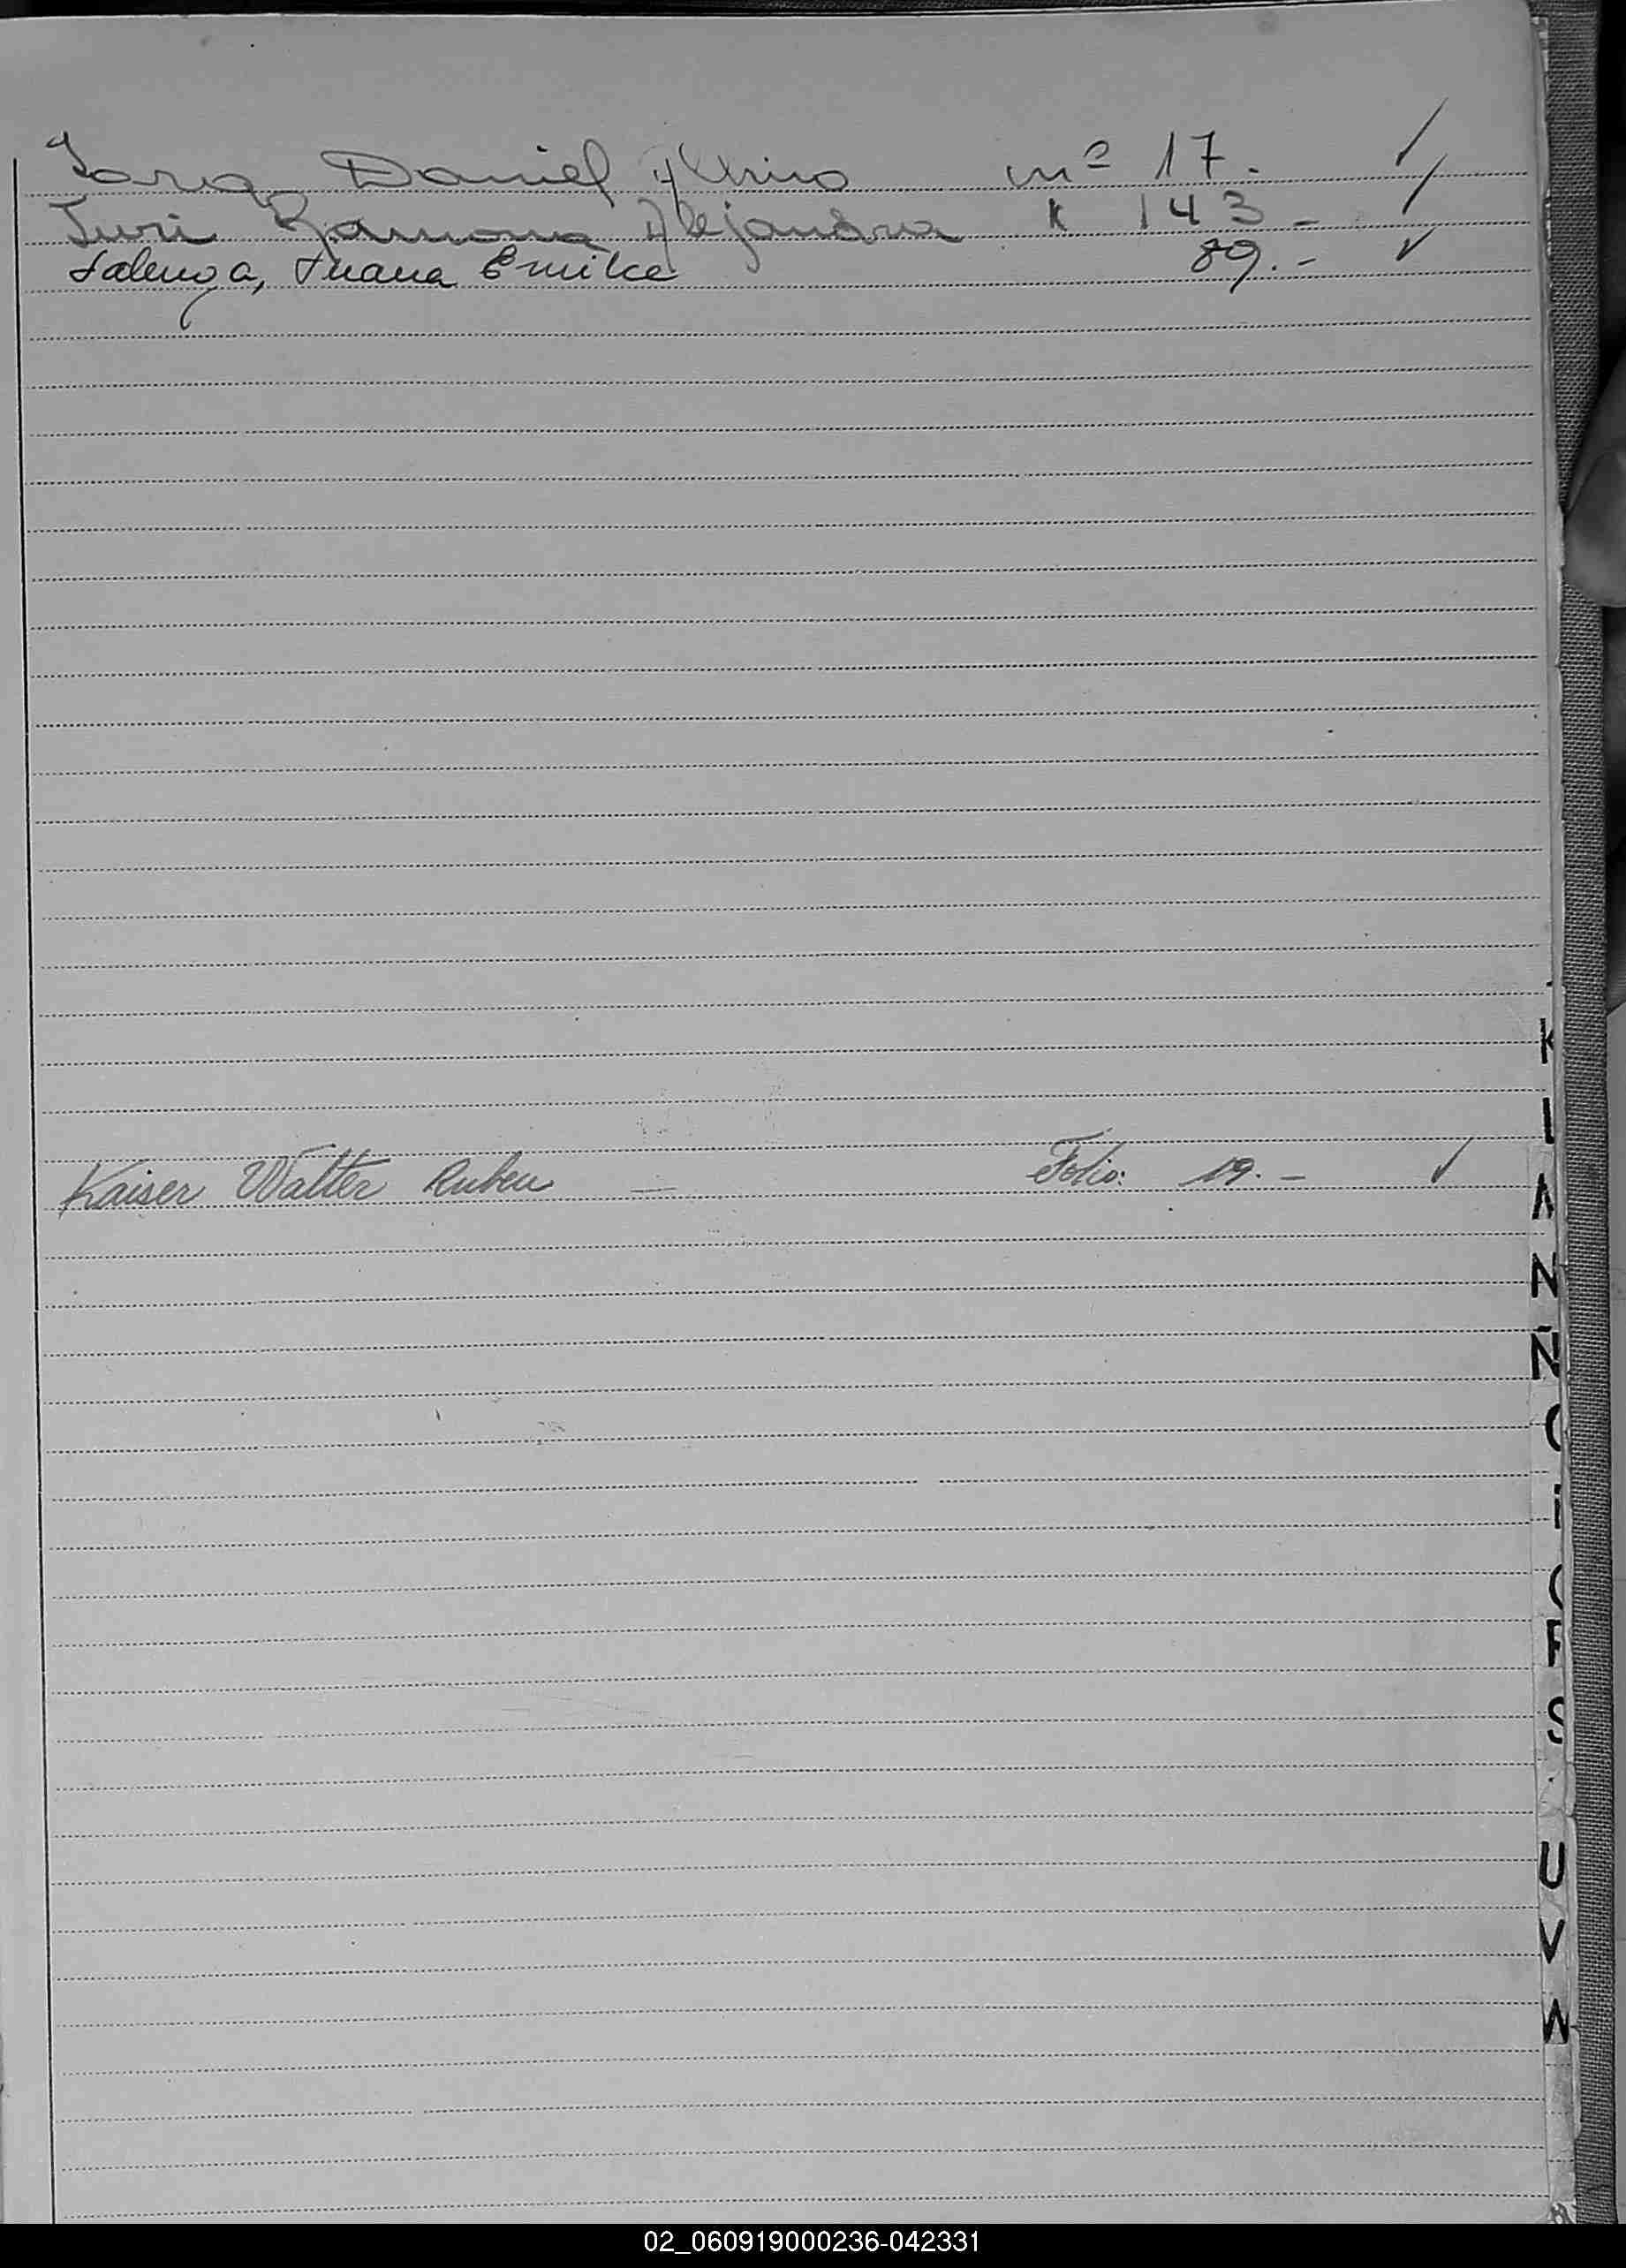 Jorg Daniel Albino nº 17. ✓
Juri Ramona Alejandra " 143 - ✓
Jalenga, Juana Emilce 89. - ✓
Kaiser Walter Ruben — Folio: 19. - ✓
K
L
N
Ñ
S
U
V
W
02_060919000236-042331